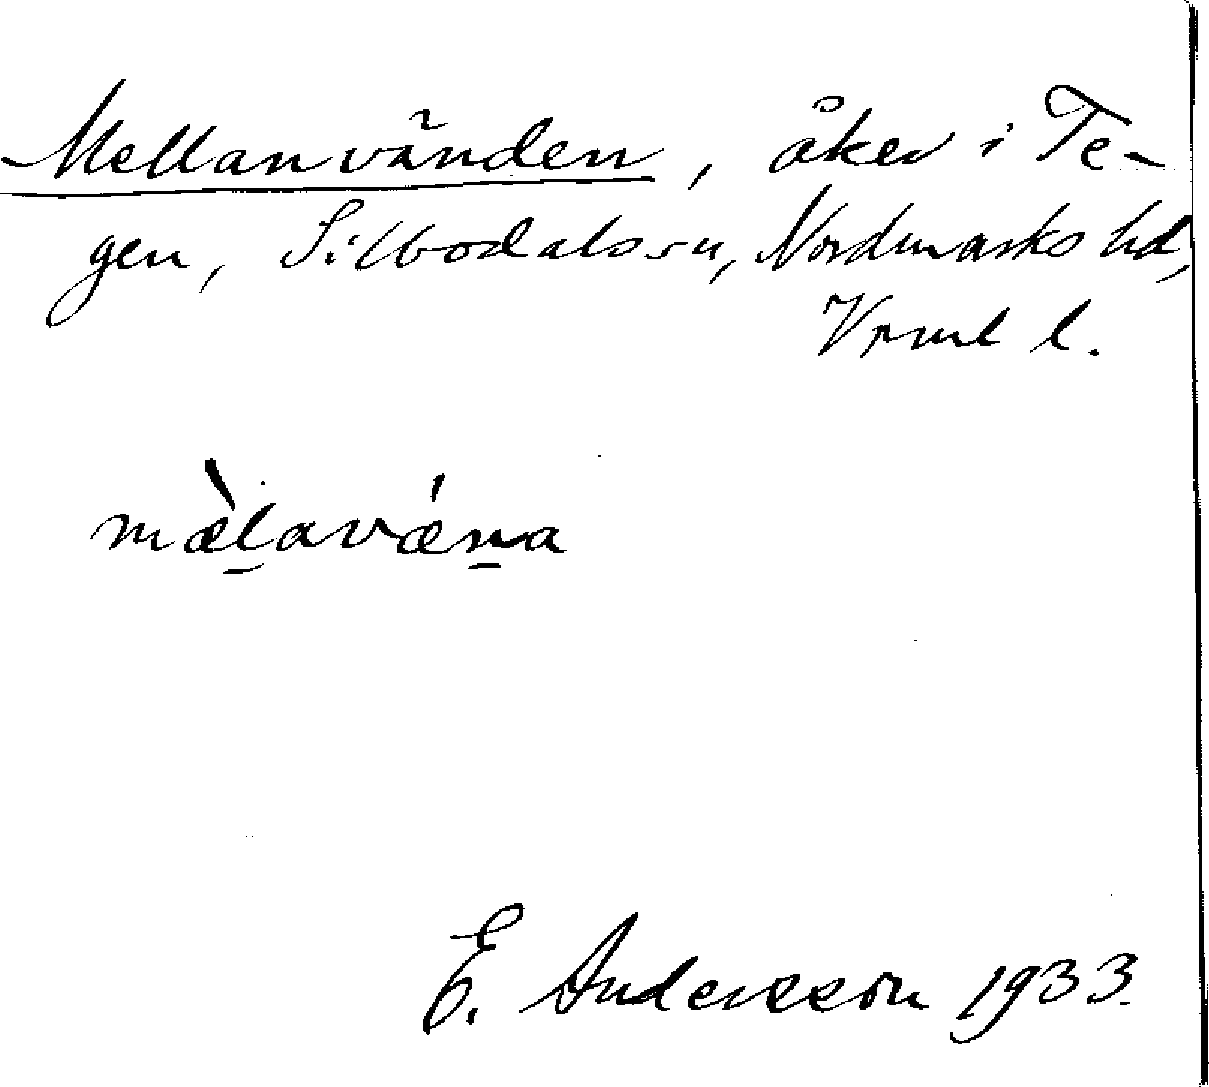 Mellanvänden, åker i Te-
gen, Silbodals sn, Nordmarks hd,
Vrml l.
mæ̀l̠avǽn̠a
E. Andersson 1933.